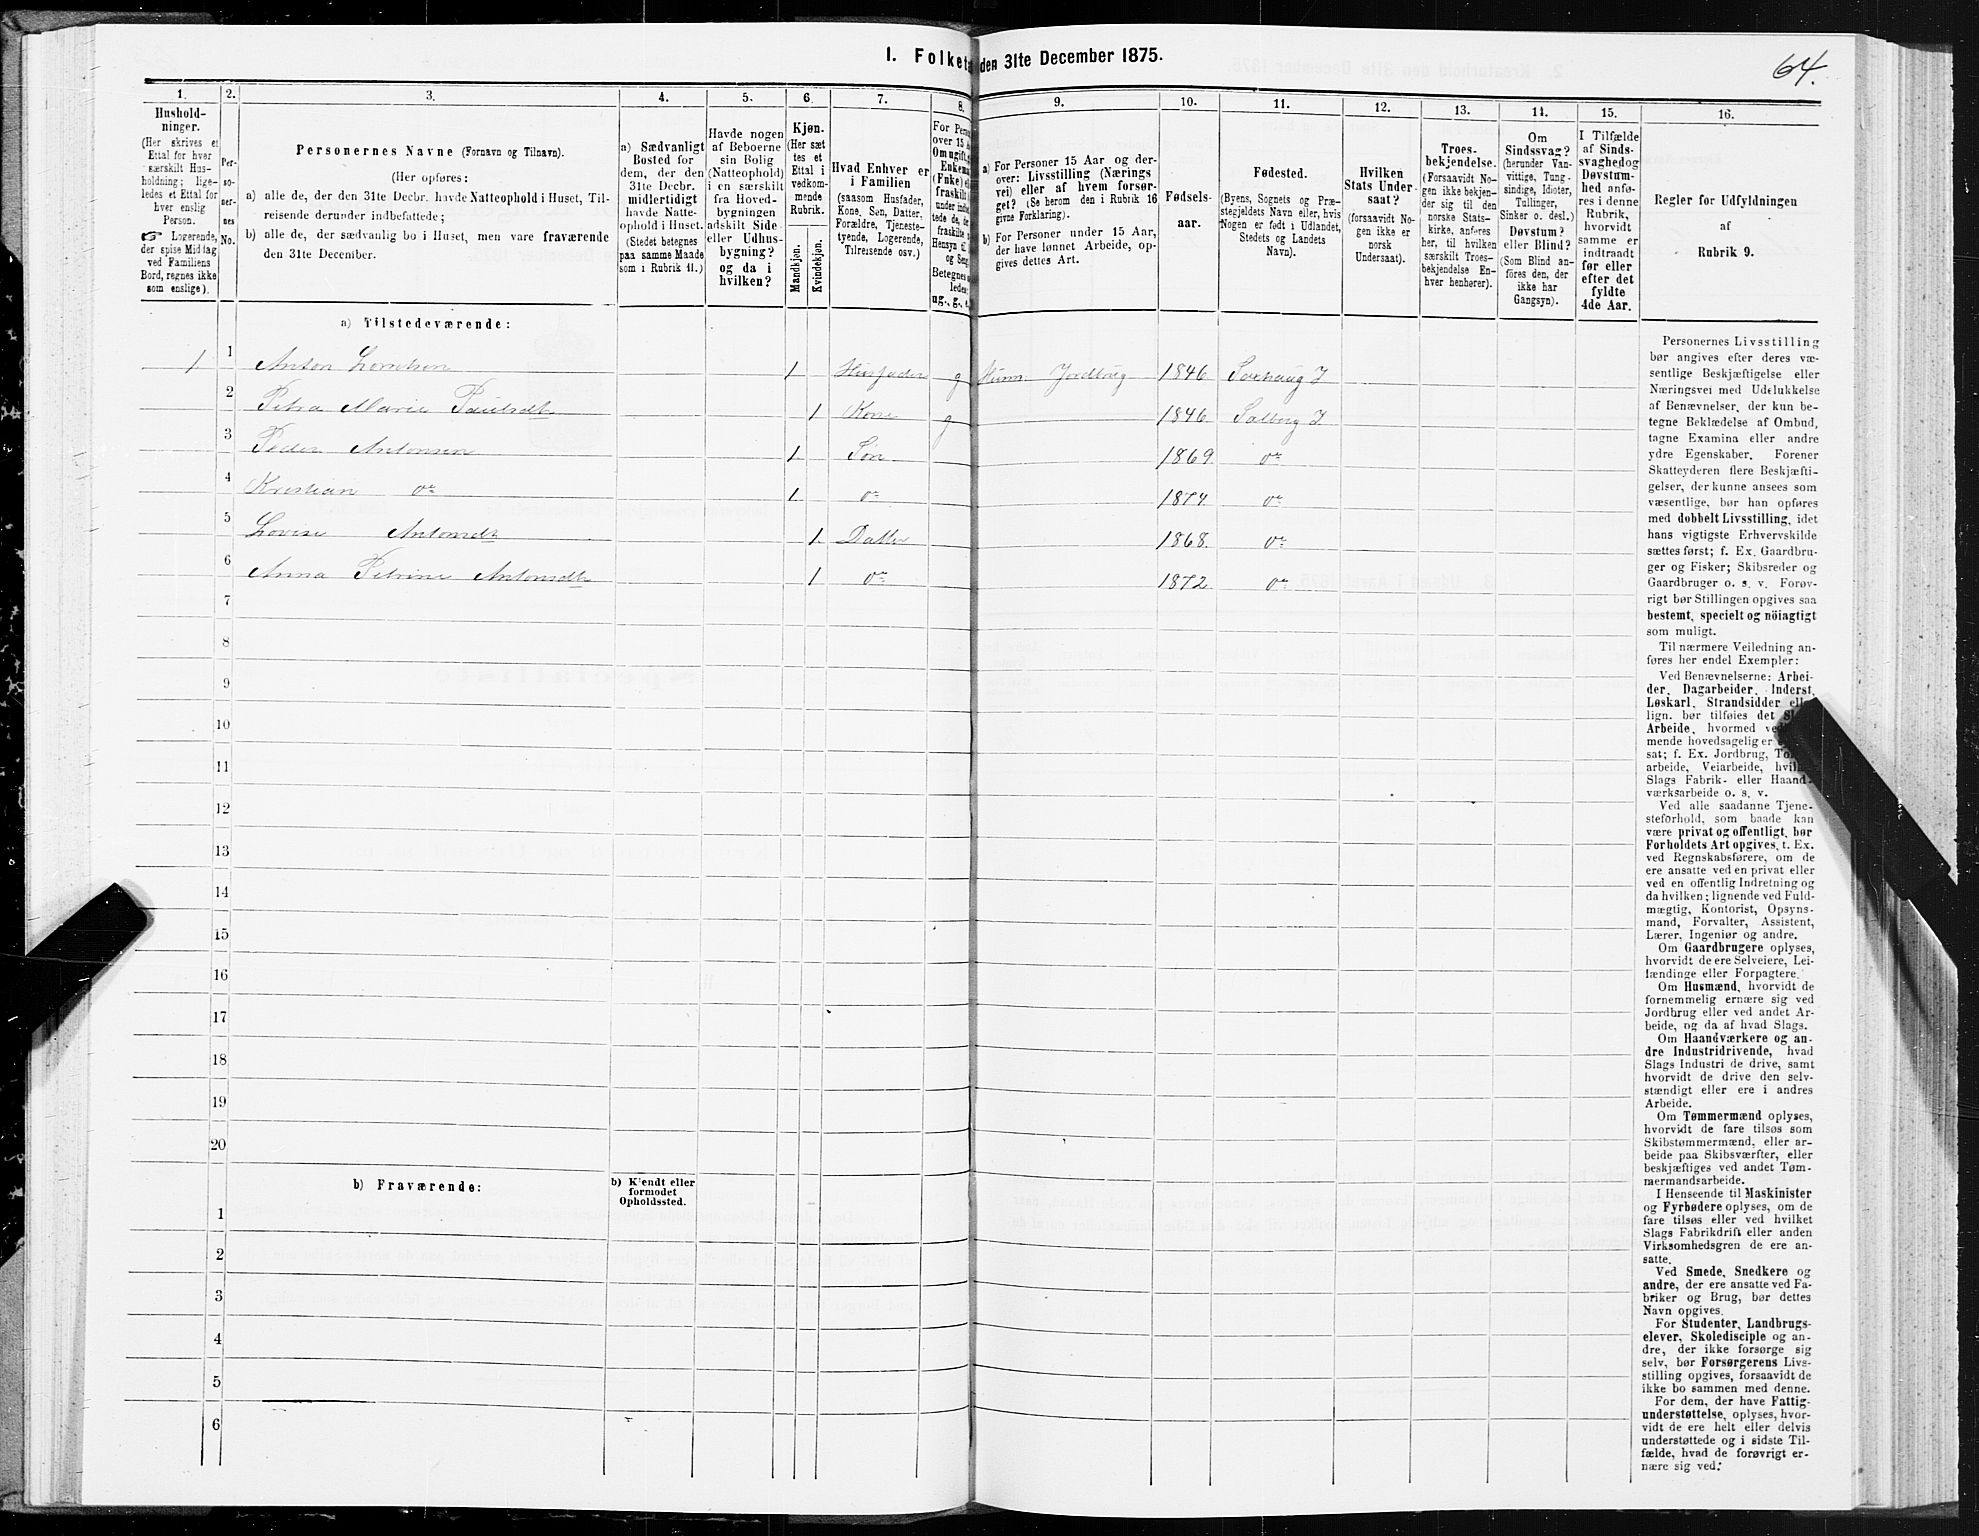 1. Folketæ den 31te December 1875.
64.
1. 2. 3. 4. 5. 6. 7. 8. 9. 10. 11. 12. 13. 14. 15. 16.
Hushold-
ninger.
(Her skrives et
Ettal for hver
særskilt Hus-
holdning; lige-
ledes et Ettal for
hver enslig
Person.
☞ Logerende,
der spise Middag
ved Familiens
Bord, regnes ikke
som enslige).
Per-
so-
ner-
nes
No.
Personernes Navne (Fornavn og Tilnavn).
(Her opføres:
a) alle de, der den 31te Decbr. havde Natteophold i Huset, Til-
reisende derunder indbefattede;
b) alle de, der sædvanlig bo i Huset, men vare fraværende
den 31te December.
a) Sædvanligt
Bosted for
dem, der den
31te Decbr.
midlertidigt
havde Natte-
ophold i Huset.
(Stedet betegnes
paa samme Maade
som i Rubrik 11.)
Havde nogen
af Beboerne
sin Bolig
(Natteophold)
i en særskilt
fra Hoved-
bygningen
adskilt Side-
eller Udhus-
bygning?
og da i
hvilken?
Kjøn.
(Her sæt
tes et
Ettal i
vedkom-
mende
Rubrik.
Mandkjøn.
Kvindekjøn.
Hvad Enhver er
i Familien
(saasom Husfader,
Kone, Søn, Datter,
Forældre, Tjeneste-
tyende, Logerende,
Tilreisende osv.)
For Perso
over 15 A
Om ugift, g
Enkema
(Enke) el
fraskilt
under indbe
tede de, de
fraskilte
Hensyn til
og Seng
Betegnes s
ledes:
ug., g., e.
a) For Personer 15 Aar og der-
over: Livsstilling (Nærings
vei) eller af hvem forsør-
get? (Se herom den i Rubrik 16
givne Forklaring).
b) For Personer under 15 Aar,
der have lønnet Arbeide, op-
gives dettes Art.
Fødsels-
aar.
Fødested.
(Byens, Sognets og Præ-
stegjeldets Navn eller, hvis
Nogen er født i Udlandet,
Stedets og Landets
Navn).
Hvilken
Stats Under-
saat?
(forsaavidt No-
gen ikke er
norsk
Undersaat).
Troes-
bekjendelse.
(Forsaavidt No-
gen ikke bekjen-
der sig til den
norske Stats-
kirke, anføres
her, til hvilken
særskilt Troes-
bekjendelse En-
hver henhører).
Om
Sindssvag?
(herunder Van-
vittige, Tung-
sindige, Idioter,
Tullinger,
Sinker o. desl.)
Døvstum?
eller Blind?
(Som Blind an-
føres den, der
ikke har
Gangsyn).
I Tilfælde
af Sinds-
svaghed og
Døvstum-
hed anfø-
res i denne
Rubrik,
hvorvidt
samme er
indtraadt
før eller
efter det
fyldte
4de Aar.
Regler for Udfyldningen
af
Rubrik 9.
a) Tilstedeværende:
1 1 Anton Lorntsen 1 Husfader g Husm: Jordbrug 1846 Saxhaug I
2 Petra Marie Paulsdt 1 Kone g 1846 Salberg I
3 Peder Antonsen 1 Søn 1869 do
4 Kristian do 1 do 1874 do
5 Lovise Antonsdt 1 Datter 1868 do
6 Anna Petrine Antonsdt 1 do 1872 do
7
8
9
10
11
12
13
14
15
16
17
18
19
20
b) Fraværende: b) Kjendt eller
formodet
Opholdssted.
1
2
3
4
5
6
Personernes Livsstilling
bør angives efter deres væ-
sentlige Beskjæftigelse eller
Næringsvei med Udelukkelse
af Benævnelser, der kun be-
tegne Beklædelse af Ombud,
tagne Examina eller andre
ydre Egenskaber. Forener
Skatteyderen flere Beskjæfti-
gelser, der kunne ansees som
væsentlige, bør han opføres
med dobbelt Livsstilling, idet
hans vigtigste Erhvervskilde
sættes først; f. Ex. Gaardbru-
ger og Fisker; Skibsreder og
Gaardbruger o. s. v. Forøv-
rigt bør Stillingen opgives saa
bestemt, specielt og nöiagtigt
som muligt.
Til nærmere Veiledning an-
føres her endel Exempler:
Ved Benævnelserne: Arbei-
der, Dagarbeider, Inderst,
Løskarl, Strandsidder elle
lign. bør tilføies det Sl
Arbeide, hvormed ved
mende hovedsagelig er
sat; f. Ex. Jordbrug, To
arbeide, Veiarbeide, hvil
Slags Fabrik- eller Haand-
værksarbeide o. s. v.
Ved alle saadanne Tjene-
steforhold, som baade kan
være privat og offentligt, bør
Forholdets Art opgives, t. Ex.
ved Regnskabsførere, om de
ere ansatte ved en privat eller
ved en offentlig Indretning og
da hvilken; lignende ved Fuld-
mægtig, Kontorist, Opsyns-
mand, Forvalter, Assistent,
Lærer, Ingeniør og andre.
Om Gaardbrugere oplyses,
hvorvidt de ere Selveiere, Lei-
lændinge eller Forpagtere.
Om Husmænd, hvorvidt de
fornemmelig ernære sig ved
Jordbrug eller ved andet Ar-
beide, og da af hvad Slags.
Om Haandværkere og an-
dre Industridrivende, hvad
Slags Industri de drive, samt
hvorvidt de drive den selv-
stændigt eller ere i andres
Arbeide.
Om Tømmermænd oplyses,
hvorvidt de fare tilsøs som
Skibstømmermænd, eller ar-
beide paa Skibsværfter, eller
beskjæftiges ved andet Tøm-
mermandsarbeide.
I Henseende til Maskinister
og Fyrbødere oplyses, om de
fare tilsøs eller ved hvilket
Slags Fabrikdrift eller anden
Virksomhedsgren de ere an-
satte.
Ved Smede, Snedkere og
andre, der ere ansatte ved Fa-
briker og Brug, bør dettes
Navn opgives.
For Studenter, Landbrugs-
elever, Skoledisciple og an-
dre, der ikke forsørge sig
selv, bør Forsørgerens Livs-
stilling opgives, forsaavidt de
ikke bo sammen med denne.
For dem, der have Fattig-
understøttelse, oplyses, hvor-
vidt de ere helt eller delvis
understøttede og i sidste Til-
fælde, hvad de forøvrigt er-
nære sig ved.